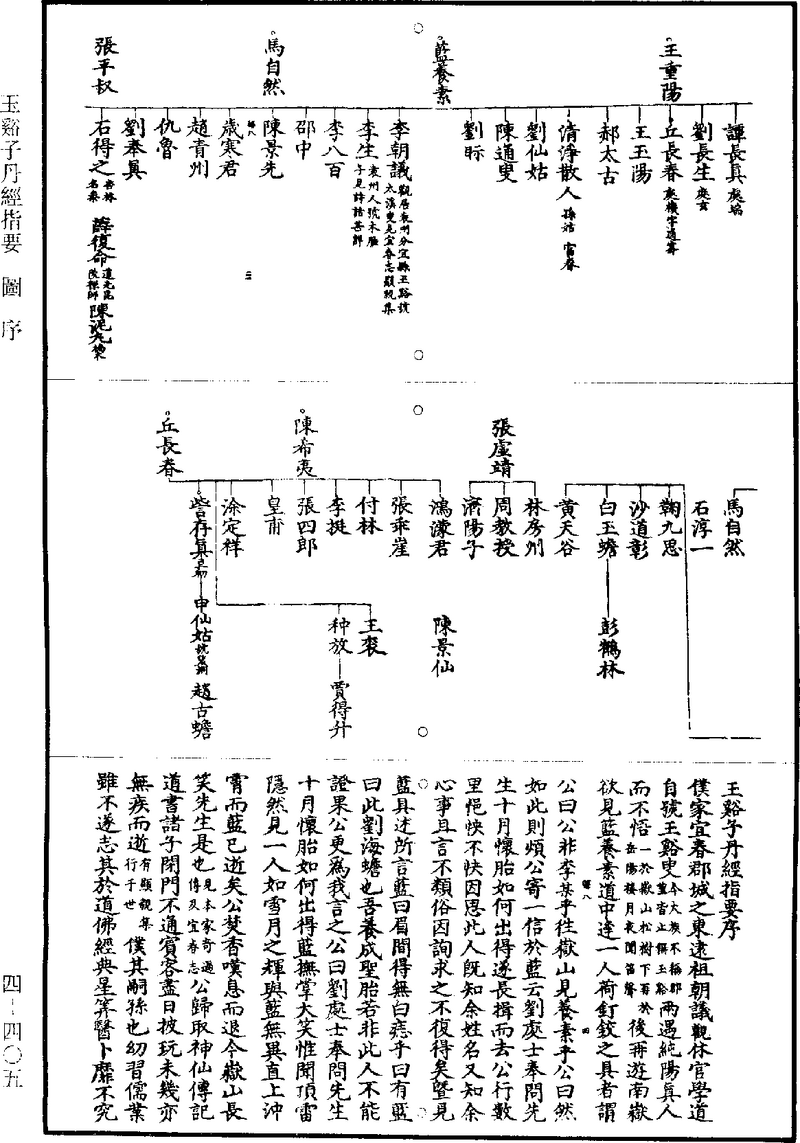 玉谿子丹經指要　圖　序
四－四〇五
王重陽
譚長真 處端
劉長生 處玄
丘長春 處機字通蜜
王玉陽
郝太古
清淨散人 孫姑 富春
劉仙姑
藍養素
陳通叟
劉昉
馬自然
李朝議 觀居袁州分宜縣玉谿號太溪叟見宜春志顯觀集
李生 袁州人號木雁子見詩話善部
李八百
邵中
陳景先
歲寒君
張平叔
趙青州
仇魯
劉奉真
石得之 杏林名泰
薛復命 道光毘陵禪師
陳泥丸 楠
馬自然
石淳一
鞠九思
沙道彰
白玉蟾
彭鶴林
黃天谷
張虛靖
林房州
周教授
濟陽子
陳希夷
鴻濛君
陳景仙
張乖崖
付林
李挺
張四郎
皇甫
王衮
种放
賈得升
丘長春
涂定祥
訾存真
申仙姑
趙古蟾
玉谿子丹經指要序
僕家宜春郡城之東逮祖朝議觀休官學道
自號玉谿叟今大族不稱郡望皆止稱玉谿兩遇純陽真人
而不悟一於嶽山松樹下一於岳陽樓月夜聞笛聲後再游南嶽
欲見藍養素道中逢一人荷釘鉸之具者謂
公曰公非李某乎往嶽山見養素乎公曰然
如此則煩公寄一信於藍云劉處士奉問先
生十月懷胎如何出得遂長揖而去公行數
里悒怏不快因思此人既知余姓名又知余
心事且言不類俗因詢求之不復得矣暨見
藍具述所言藍曰眉間得無白痣乎曰有藍
曰此劉海蟾也吾養成聖胎若非此人不能
證果公更為我言之公曰劉處士奉問先生
十月懷胎如何出得藍撫掌大笑惟聞頂雷
隱然見一人如雪月之輝與藍無異直上沖
霄而藍已逝矣公焚香嘆息而退今嶽山長
笑先生是也見本家奇遇傳及宜春志公歸取神仙傳記
道書諸子閉門不通賓客盡日披玩未幾亦
無疾而逝有顯觀集行于世僕其嗣孫也幼習儒業
雖不遂志其於道佛經典星筭醫卜靡不究